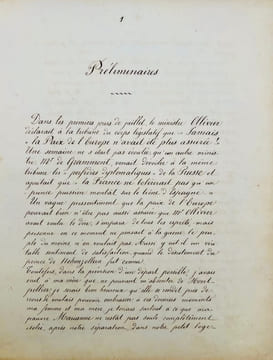 1
Préliminaires
Dans les premiers jours de juillet, le ministre Ollivier
déclarait à la tribune du corps législatif que « Jamais
« la Paix de l'Europe n'avait été plus assurée !
Une semaine ne s'était pas écoulée, qu'un autre minis-
tre, Mr de Grammont, venait dévoiler à la même
tribune les « perfidies diplomatiques » de la Prusse et
ajoutait que « la France ne tolérerait pas qu'un
« prince prussien montât sur le trône d'Espagne »
Un vague pressentiment que la paix de l'Europe
pouvait bien n'être pas aussi assurée que Mr Ollivier
avait voulu le dire, s'empara de tous les esprits, mais
personne en ce moment ne pensait à la guerre, le peu-
ple du moins n'en voulait pas. Aussi y eut-il un véri-
table sentiment de satisfaction quand le désistement du
prince de Hohenzollern fut connu.
Toutefois, dans la prévision d'un départ possible, j'avais
écrit à ma mère que ne pouvant m'absenter de Mont-
pellier je serais bien heureux que elle
nous voulait pouvoir embrasser à ces derniers moments
ma femme et ma mère, je tenais surtout à ce que ma
pauvre Marianne ne restât pas seule complètement
isolée, après notre séparation, dans notre petit loge-